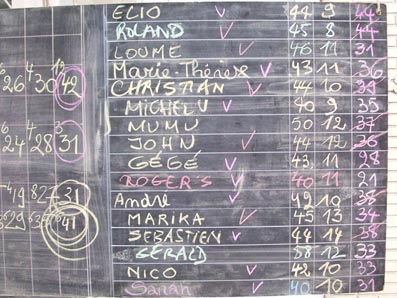 ELIO V 44 9 44
ROLAND V 45 8 44
LOUME V 46 11 31
Marie-Thérèse V 43 11 36
CHRISTIAN V 44 10
MICHEL V 40 9 35
MUMU 50 12 37
JOHN V 44 12 36
GÉGÉ 43 11 28
ROGER'S V 40 11 21
André V 10
MARIKA V 45 13 34
SEBASTIEN V 44 14 38
GERALD 12 33
NICO V 42 10 33
Sarah V 40 10 31
26 30 42
24 28 31
31
41